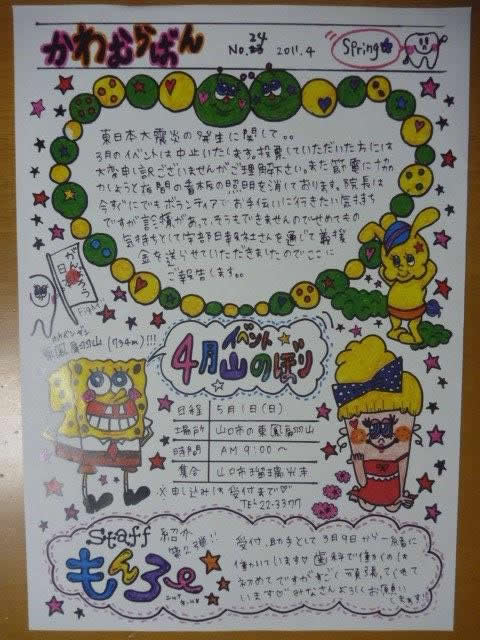 かわむらばん
No. 24 2011.4
Spring
東日本大震災の発生に関して。。
3月のイベントは中止いたします。投票していただいた方には
大変申し訳ございませんがご理解下さい。また節電に協力
しようと夜間の看板の照明を消しております。院長は
今すぐにでもボランティアでお手伝いに行きたい気持ち
ですが診療があって、そうもできませんのでせめてもの
気持ちとして宇部日報社さんを通じて義援
金を送らせていただきましたのでここに
ご報告します。。
がんばろう
日本
Fight
東鳳翩山(734m)!!!
イベント
4月山のぼり
日程 5月1日(日)
場所 山口市の東鳳翩山
時間 AM 9:00〜
集合 山口市瑠璃光寺
※申し込みは受付まで♡
TEL 22-3377
Staff 紹介
第2弾!!
もんろー
受付、助手として3月9日から一緒に
働いています♡歯科で働くのは
初めてですがすごく頑張ってくれて
います♡みなさんよろしくお願い
します!!